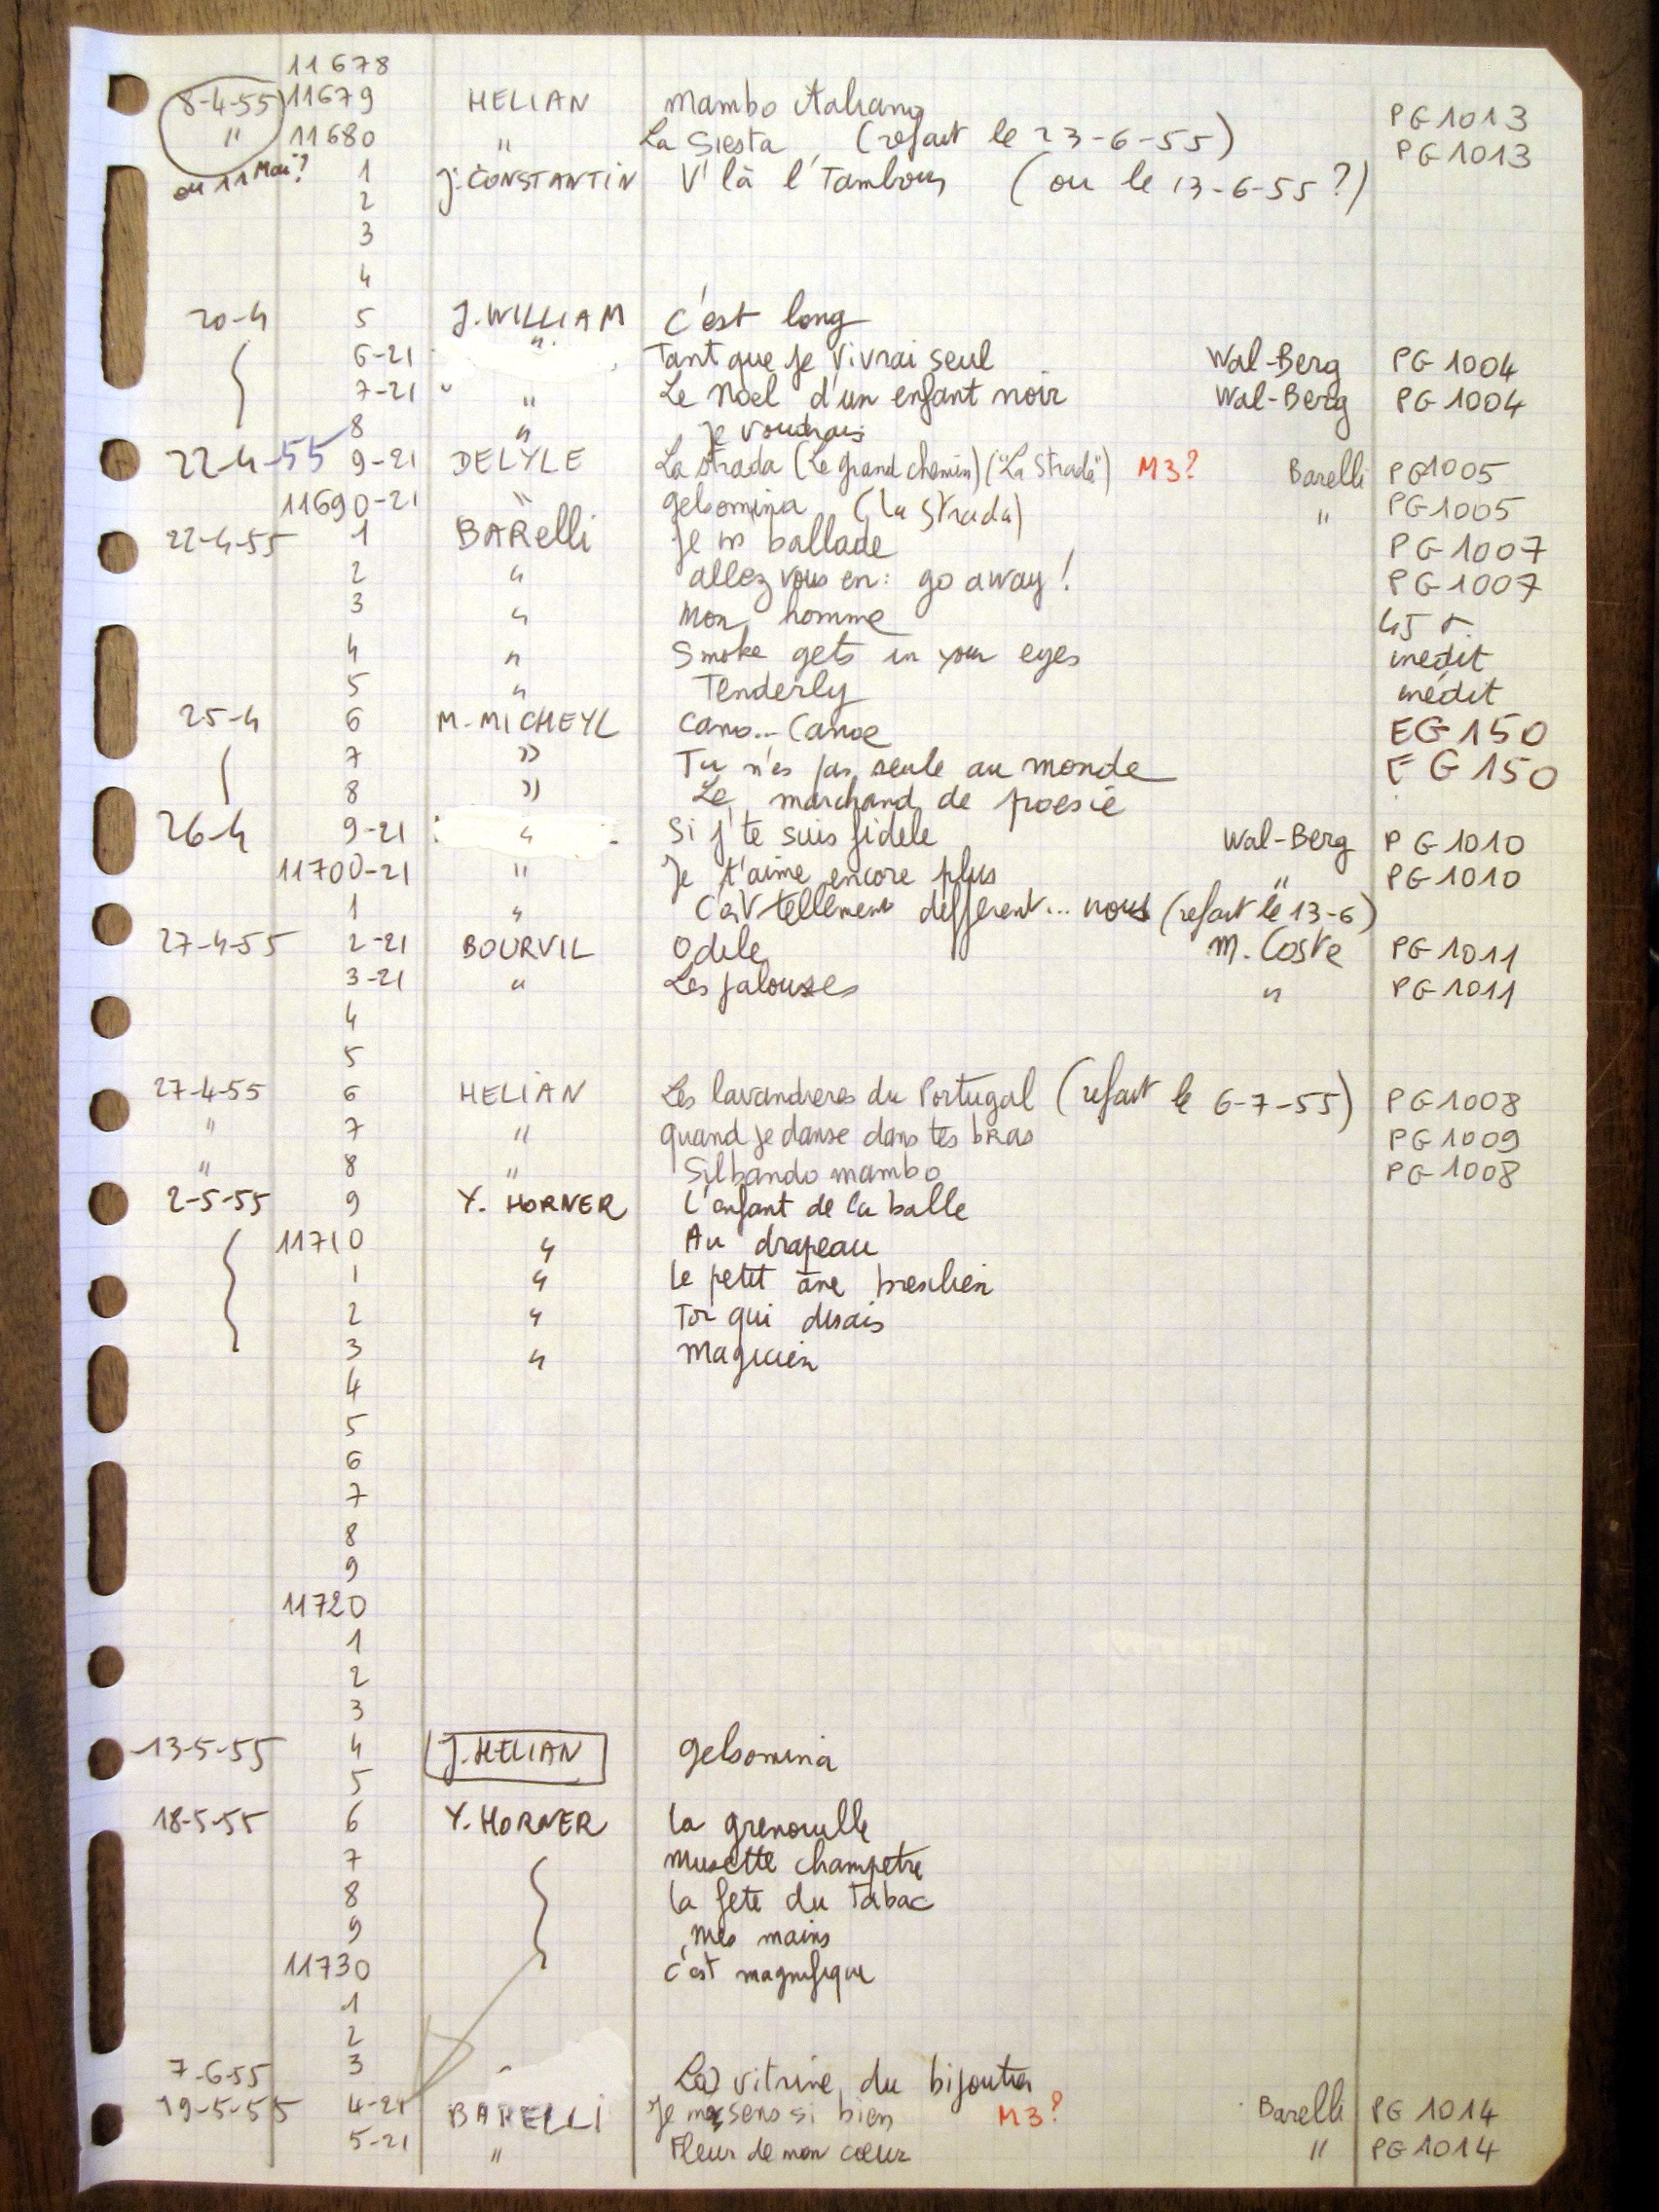 11678
8-4-55 11679 HELIAN Mambo italiano PG 1013
" 11680 " La Siesta (refait le 23-6-55) PG 1013
ou 11 Mai? 1 J. CONSTANTIN V'là l'Tambour (ou le 13-6-55?)
2
3
4
20-4 5 J. WILLIAM C'est long
6-21 " Tant que je vivrai seul Wal-Berg PG 1004
7-21 " " Le Noel d'un enfant noir Wal-Berg PG 1004
8 " Je voudrais
22-4-55 9-21 DELYLE La strada (Le grand chemin) ("La Strada") M3? Barelli PG1005
11690-21 " Gelsomina (la Strada) " PG1005
22-4-55 1 BARelli Je m ballade PG 1007
2 " allez vous en: go away! PG 1007
3 " Mon homme 45 t.
4 " Smoke gets in your eyes inedit
5 " Tenderly inédit
25-4 6 M. MICHEYL Cano... Canoe EG 150
7 " Tu n'es pas seule au monde EG 150
8 " Le marchand de poesie
26-4 9-21 " Si j'te suis fidele Wal-Berg PG 1010
11700-21 " Je t'aime encore plus " PG 1010
1 " C'est tellement different... nous (refait le 13-6)
27-4-55 2-21 BOURVIL Odile M. Coste PG 1011
3-21 " Les jalouses " PG 1011
4
5
27-4-55 6 HELIAN Les lavandieres du Portugal (refait le 6-7-55) PG 1008
" 7 " Quand je danse dans tes bras PG 1009
" 8 " Silbando mambo PG 1008
2-5-55 9 Y. HORNER L'enfant de la balle
11710 " Au drapeau
1 " Le petit âne bresilien
2 " Toi qui disais
3 " Magicien
4
5
6
7
8
9
11720
1
2
3
13-5-55 4 J. HELIAN Gelsomina
5
18-5-55 6 Y. HORNER La grenouille
7 Musette champetre
8 La fete du Tabac
9 Mes mains
11730 C'est magnifique
1
2
7-6-55 3 " La vitrine du bijoutier
19-5-55 4-21 BARELLI Je me sens si bien M3? Barelli PG 1014
5-21 " Fleur de mon cœur " PG 1014